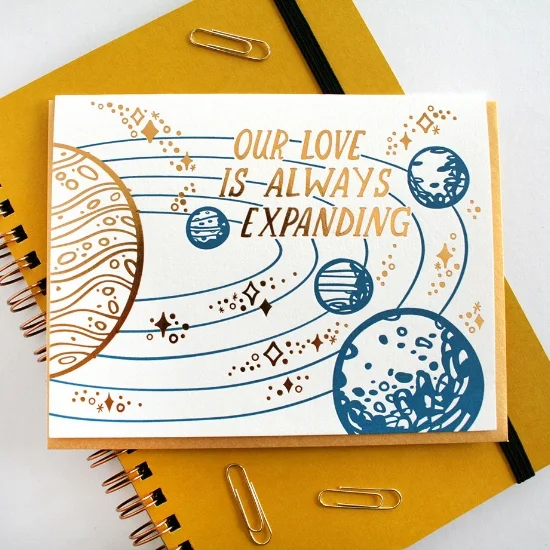 OUR LOVE
IS ALWAYS
EXPANDING